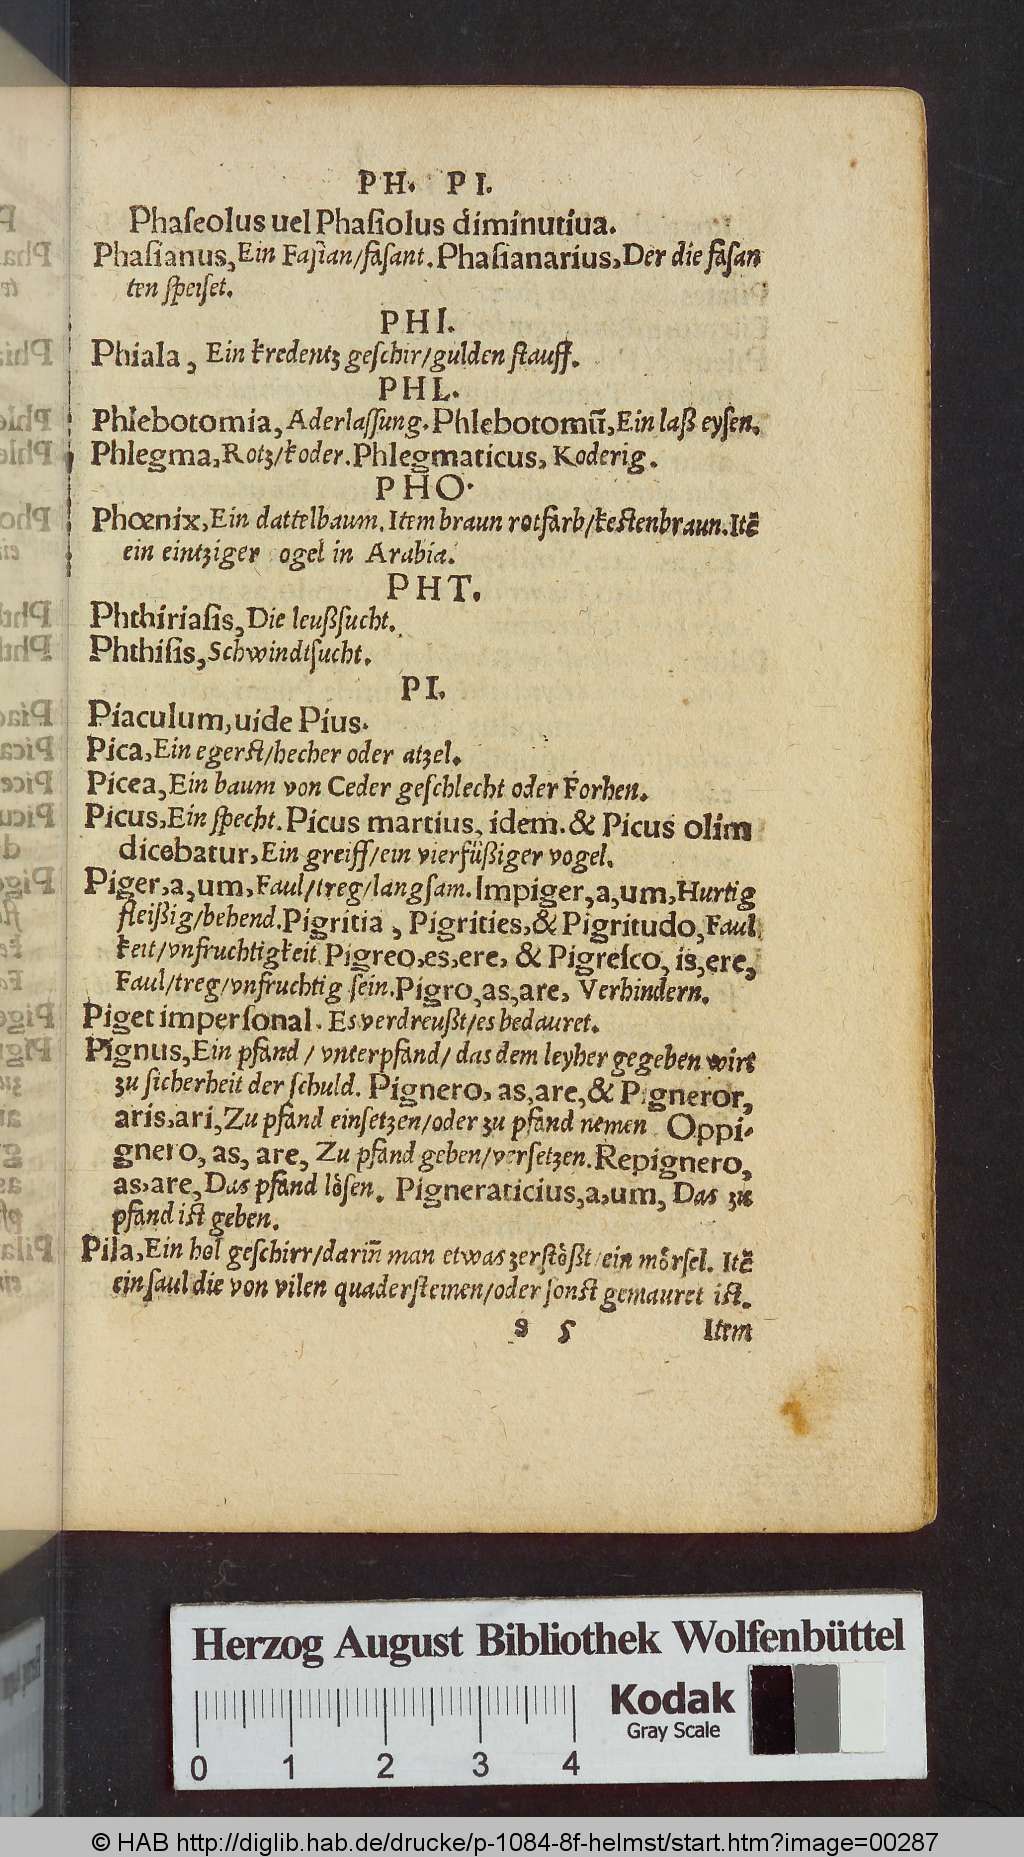 PH. PI.
Phaſeolus uel Phaſiolus diminutiua.
Phaſianus, Ein Faſian/faſant. Phaſianarius, Der die faſan
ten ſpeiſet.
PHI.
Phiala, Ein kredentz geſchir/gulden ſtauff.
PHL.
Phlebotomia, Aderlaſſung. Phlebotomū, Ein laß eyſen.
Phlegma, Rotz/koder. Phlegmaticus, Koderig.
PHO.
Phœnix, Ein dattelbaum. Item braun rotfarb/keſtenbraun. Itē
ein eintziger ogel in Arabia.
PHT.
Phthiriaſis, Die leußſucht.
Phthiſis, Schwindtſucht.
PI.
Piaculum, uide Pius.
Pica, Ein egerſt/hecher oder atzel.
Picea, Ein baum von Ceder geſchlecht oder Forhen.
Picus, Ein ſpecht. Picus martius, idem. & Picus olim
dicebatur, Ein greiff/ein vierfüßiger vogel.
Piger, a, um, Faul/treg/langſam. Impiger, a, um, Hurtig
fleißig/behend. Pigritia, Pigrities, & Pigritudo, Faul
keit/vnfruchtigkeit. Pigreo, es, ere, & Pigreſco, is, ere,
Faul/treg/vnfruchtig ſein. Pigro, as, are, Verhindern.
Piget imperſonal. Es verdreußt/es bedauret.
Pignus, Ein pfand/vnterpfand/das dem leyher gegeben wirt
zu ſicherheit der ſchuld. Pignero, as, are, & Pigneror,
aris, ari, Zu pfand einſetzen/oder zu pfand nemen Oppi-
gnero, as, are, Zu pfand geben/verſetzen. Repignero,
as, are, Das pfand löſen. Pigneraticius, a, um, Das zu
pfand iſt geben.
Pila, Ein hol geſchirr/darin̄ man etwas zerſtößt/ein mörſel. Itē
ein ſaul die von vilen quaderſteinen/oder ſonſt gemauret iſt.
s 5 Item
Herzog August Bibliothek Wolfenbüttel
Kodak
Gray Scale
0 1 2 3 4
© HAB http://diglib.hab.de/drucke/p-1084-8f-helmst/start.htm?image=00287